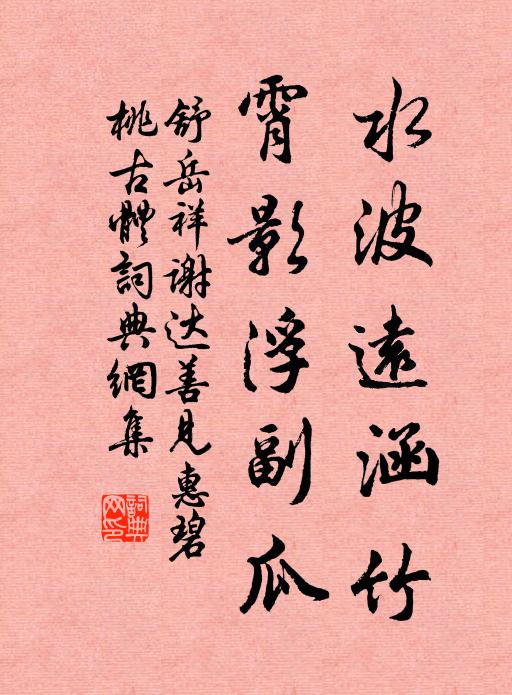 水波遠涵竹
霄影浮副瓜
舒岳祥谢达善见惠碧
桃古體詞典網集
詞典
网印